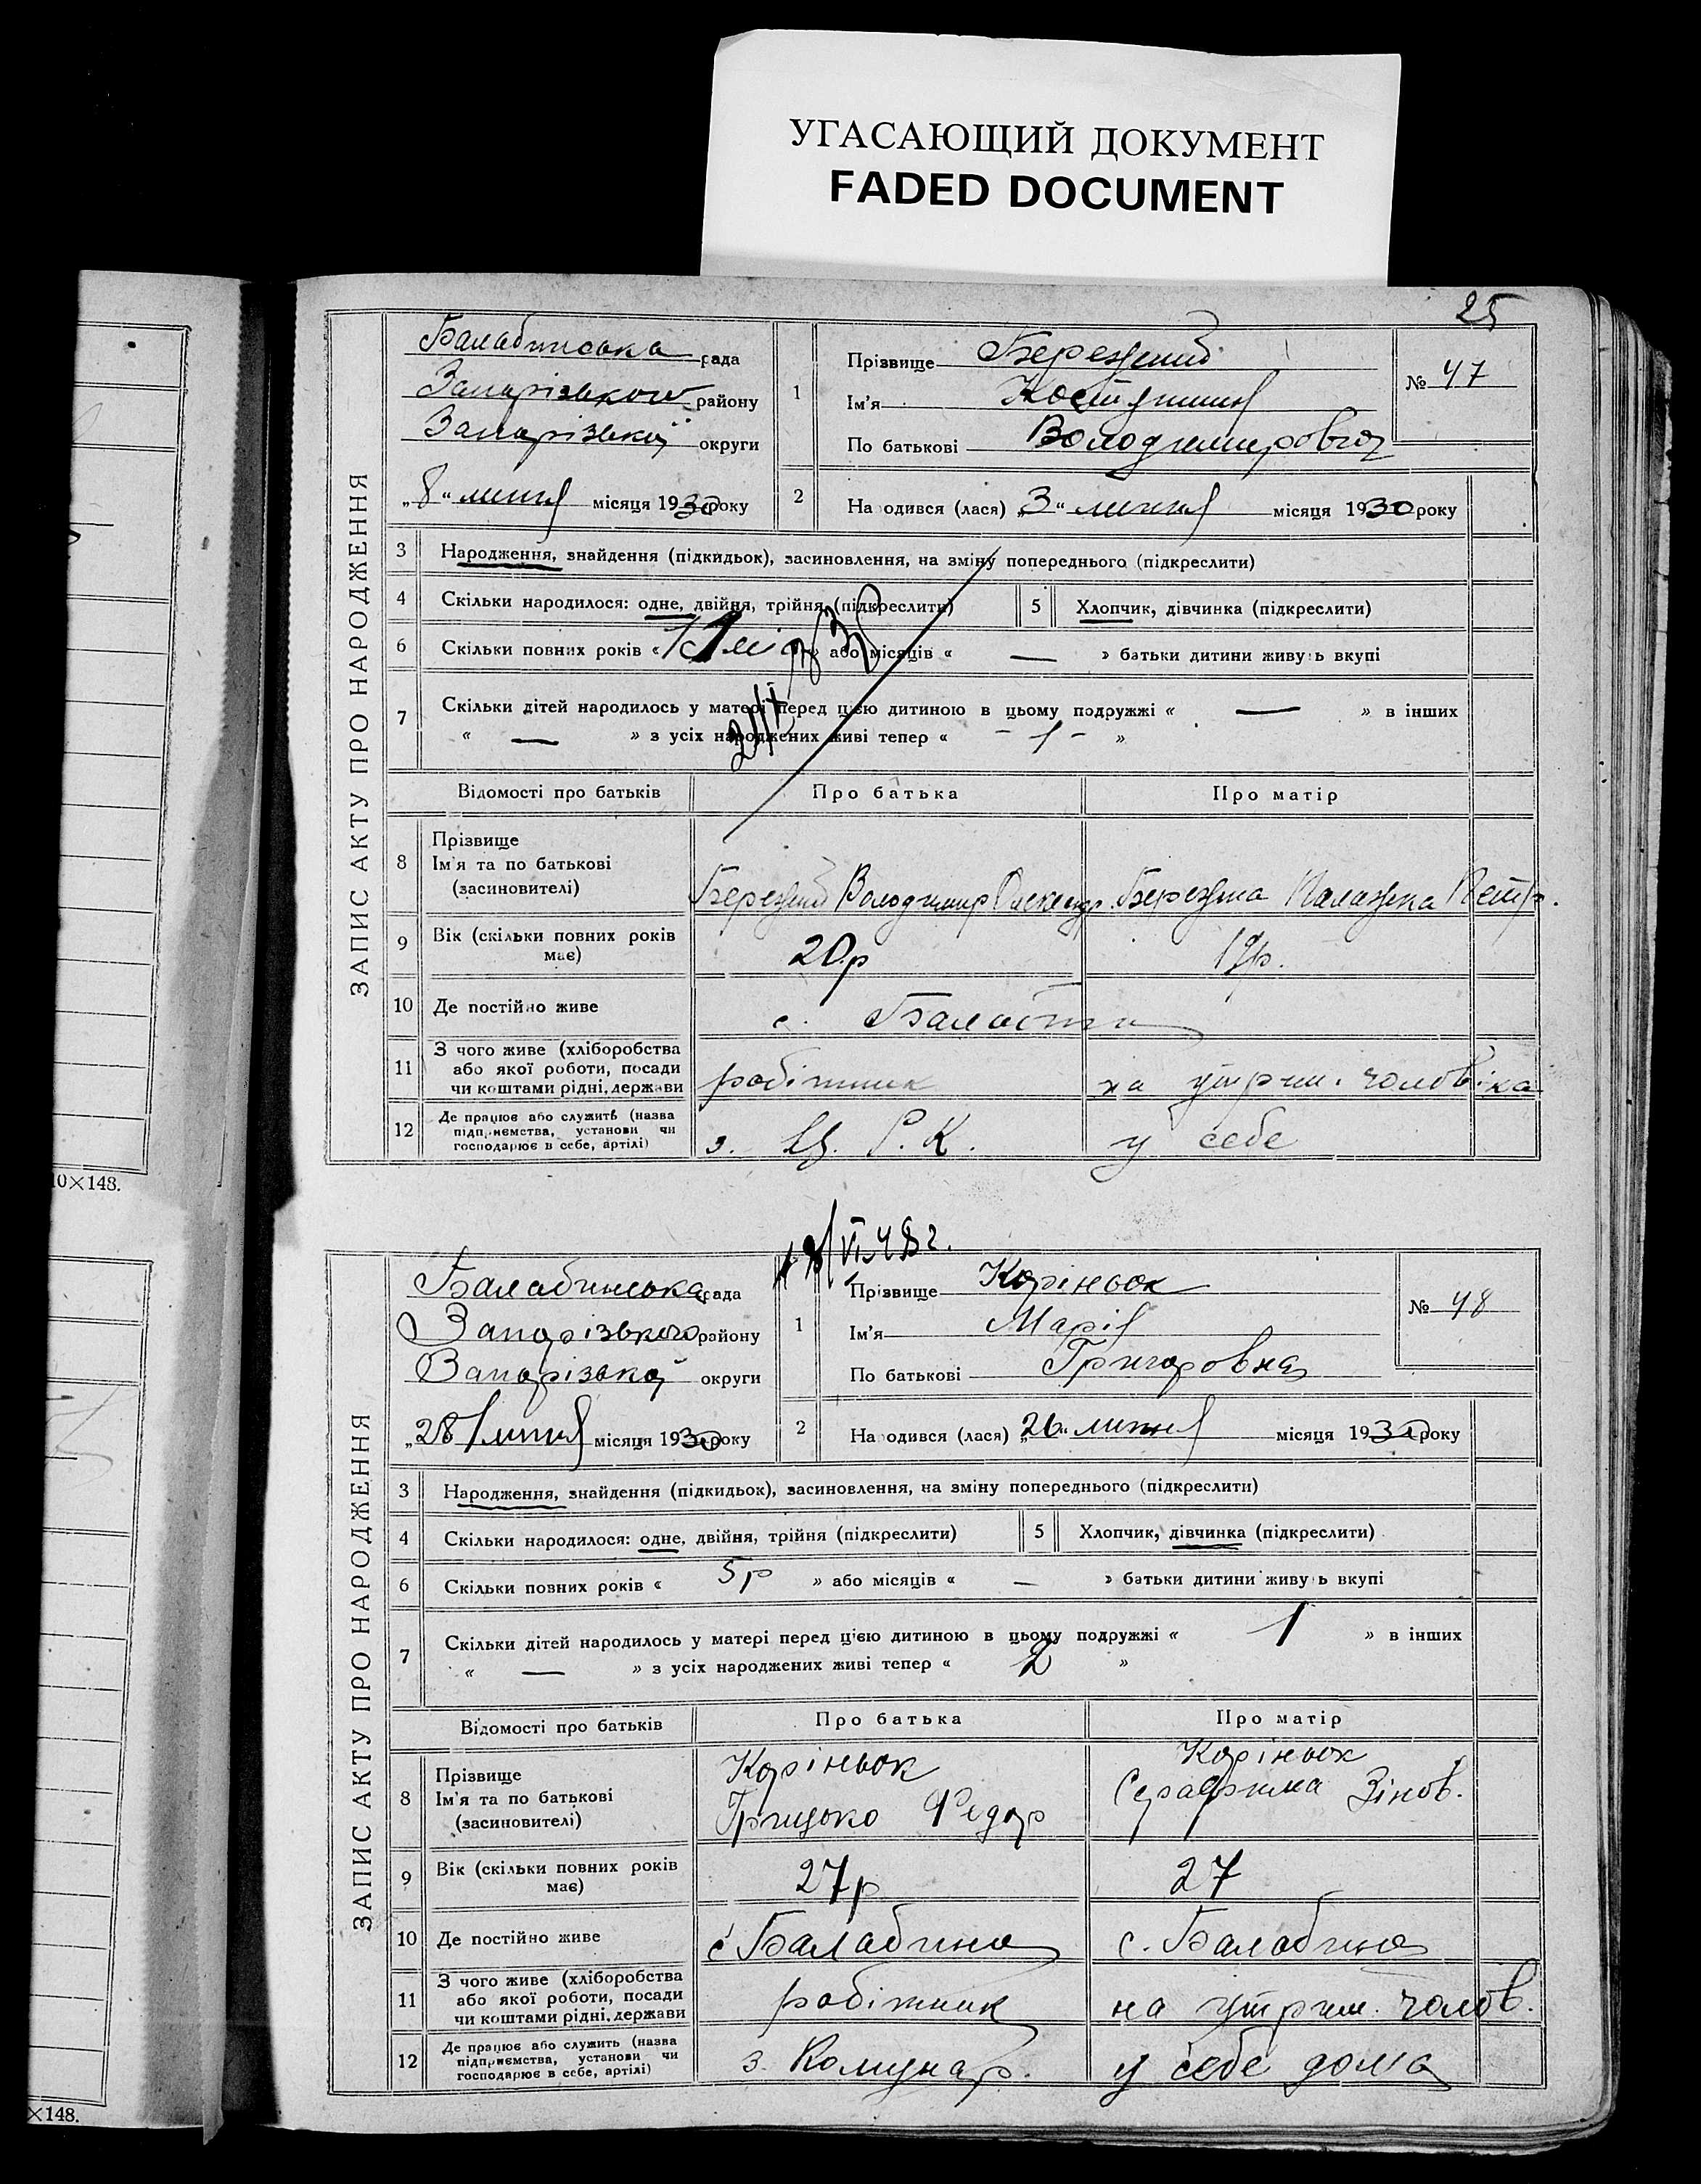 УГАСАЮЩИЙ ДОКУМЕНТ
FADED DOCUMENT
25
ЗАПИС АКТУ ПРО НАРОДЖЕННЯ
Балабинська рада
Запорізького району
Запорізької округи
„8“ липня місяця 1930 року
1
Прізвище
Ім'я
По батькові Володимирович
№ 47
2
Народився (лася) „3“ липня місяця 1930 року
3 Народження, знайдення (підкидьок), засиновлення, на зміну попереднього (підкреслити)
4 Скільки народилося: одне, двійня, трійня (підкреслити) 5 Хлопчик, дівчинка (підкреслити)
6 Скільки повних років « » або місяців « — » батьки дитини живуть вкупі
7 Скільки дітей народилось у матері перед цією дитиною в цьому подружжі « — » в інших
« — » з усіх народжених живі тепер « - 1 - »
Відомості про батьків Про батька Про матір
8 Прізвище
Ім'я та по батькові
(засиновителі)
Володимир Олександр. Петр.
9 Вік (скільки повних років має) 20р 19р.
10 Де постійно живе с.
11 З чого живе (хліборобства або якої роботи, посади чи коштами рідні, держави робітник на утрим. чоловіка
12 Де працює або служить (назва підприємства, установи чи господарює в себе, артілі) з. Ц. Р. К. у себе
10×148.
18/VI 48 г.
ЗАПИС АКТУ ПРО НАРОДЖЕННЯ
Балабинська рада
Запорізького району
Запорізької округи
„28“ липня місяця 1930 року
1
Прізвище Коріньок
Ім'я Марія
По батькові Григоровна
№ 48
2
Народився (лася) „26“ липня місяця 1930 року
3 Народження, знайдення (підкидьок), засиновлення, на зміну попереднього (підкреслити)
4 Скільки народилося: одне, двійня, трійня (підкреслити) 5 Хлопчик, дівчинка (підкреслити)
6 Скільки повних років « 5р » або місяців « — » батьки дитини живуть вкупі
7 Скільки дітей народилось у матері перед цією дитиною в цьому подружжі « 1 » в інших
« — » з усіх народжених живі тепер « 2 »
Відомості про батьків Про батька Про матір
8 Прізвище
Ім'я та по батькові
(засиновителі)
Коріньок Коріньок
Грицько Федор Серафима Зінов.
9 Вік (скільки повних років має) 27р 27
10 Де постійно живе с Балабина с. Балабина
11 З чого живе (хліборобства або якої роботи, посади чи коштами рідні, держави робітник на утрим. чолов.
12 Де працює або служить (назва підприємства, установи чи господарює в себе, артілі) з. Комунар. у себе дома
×148.